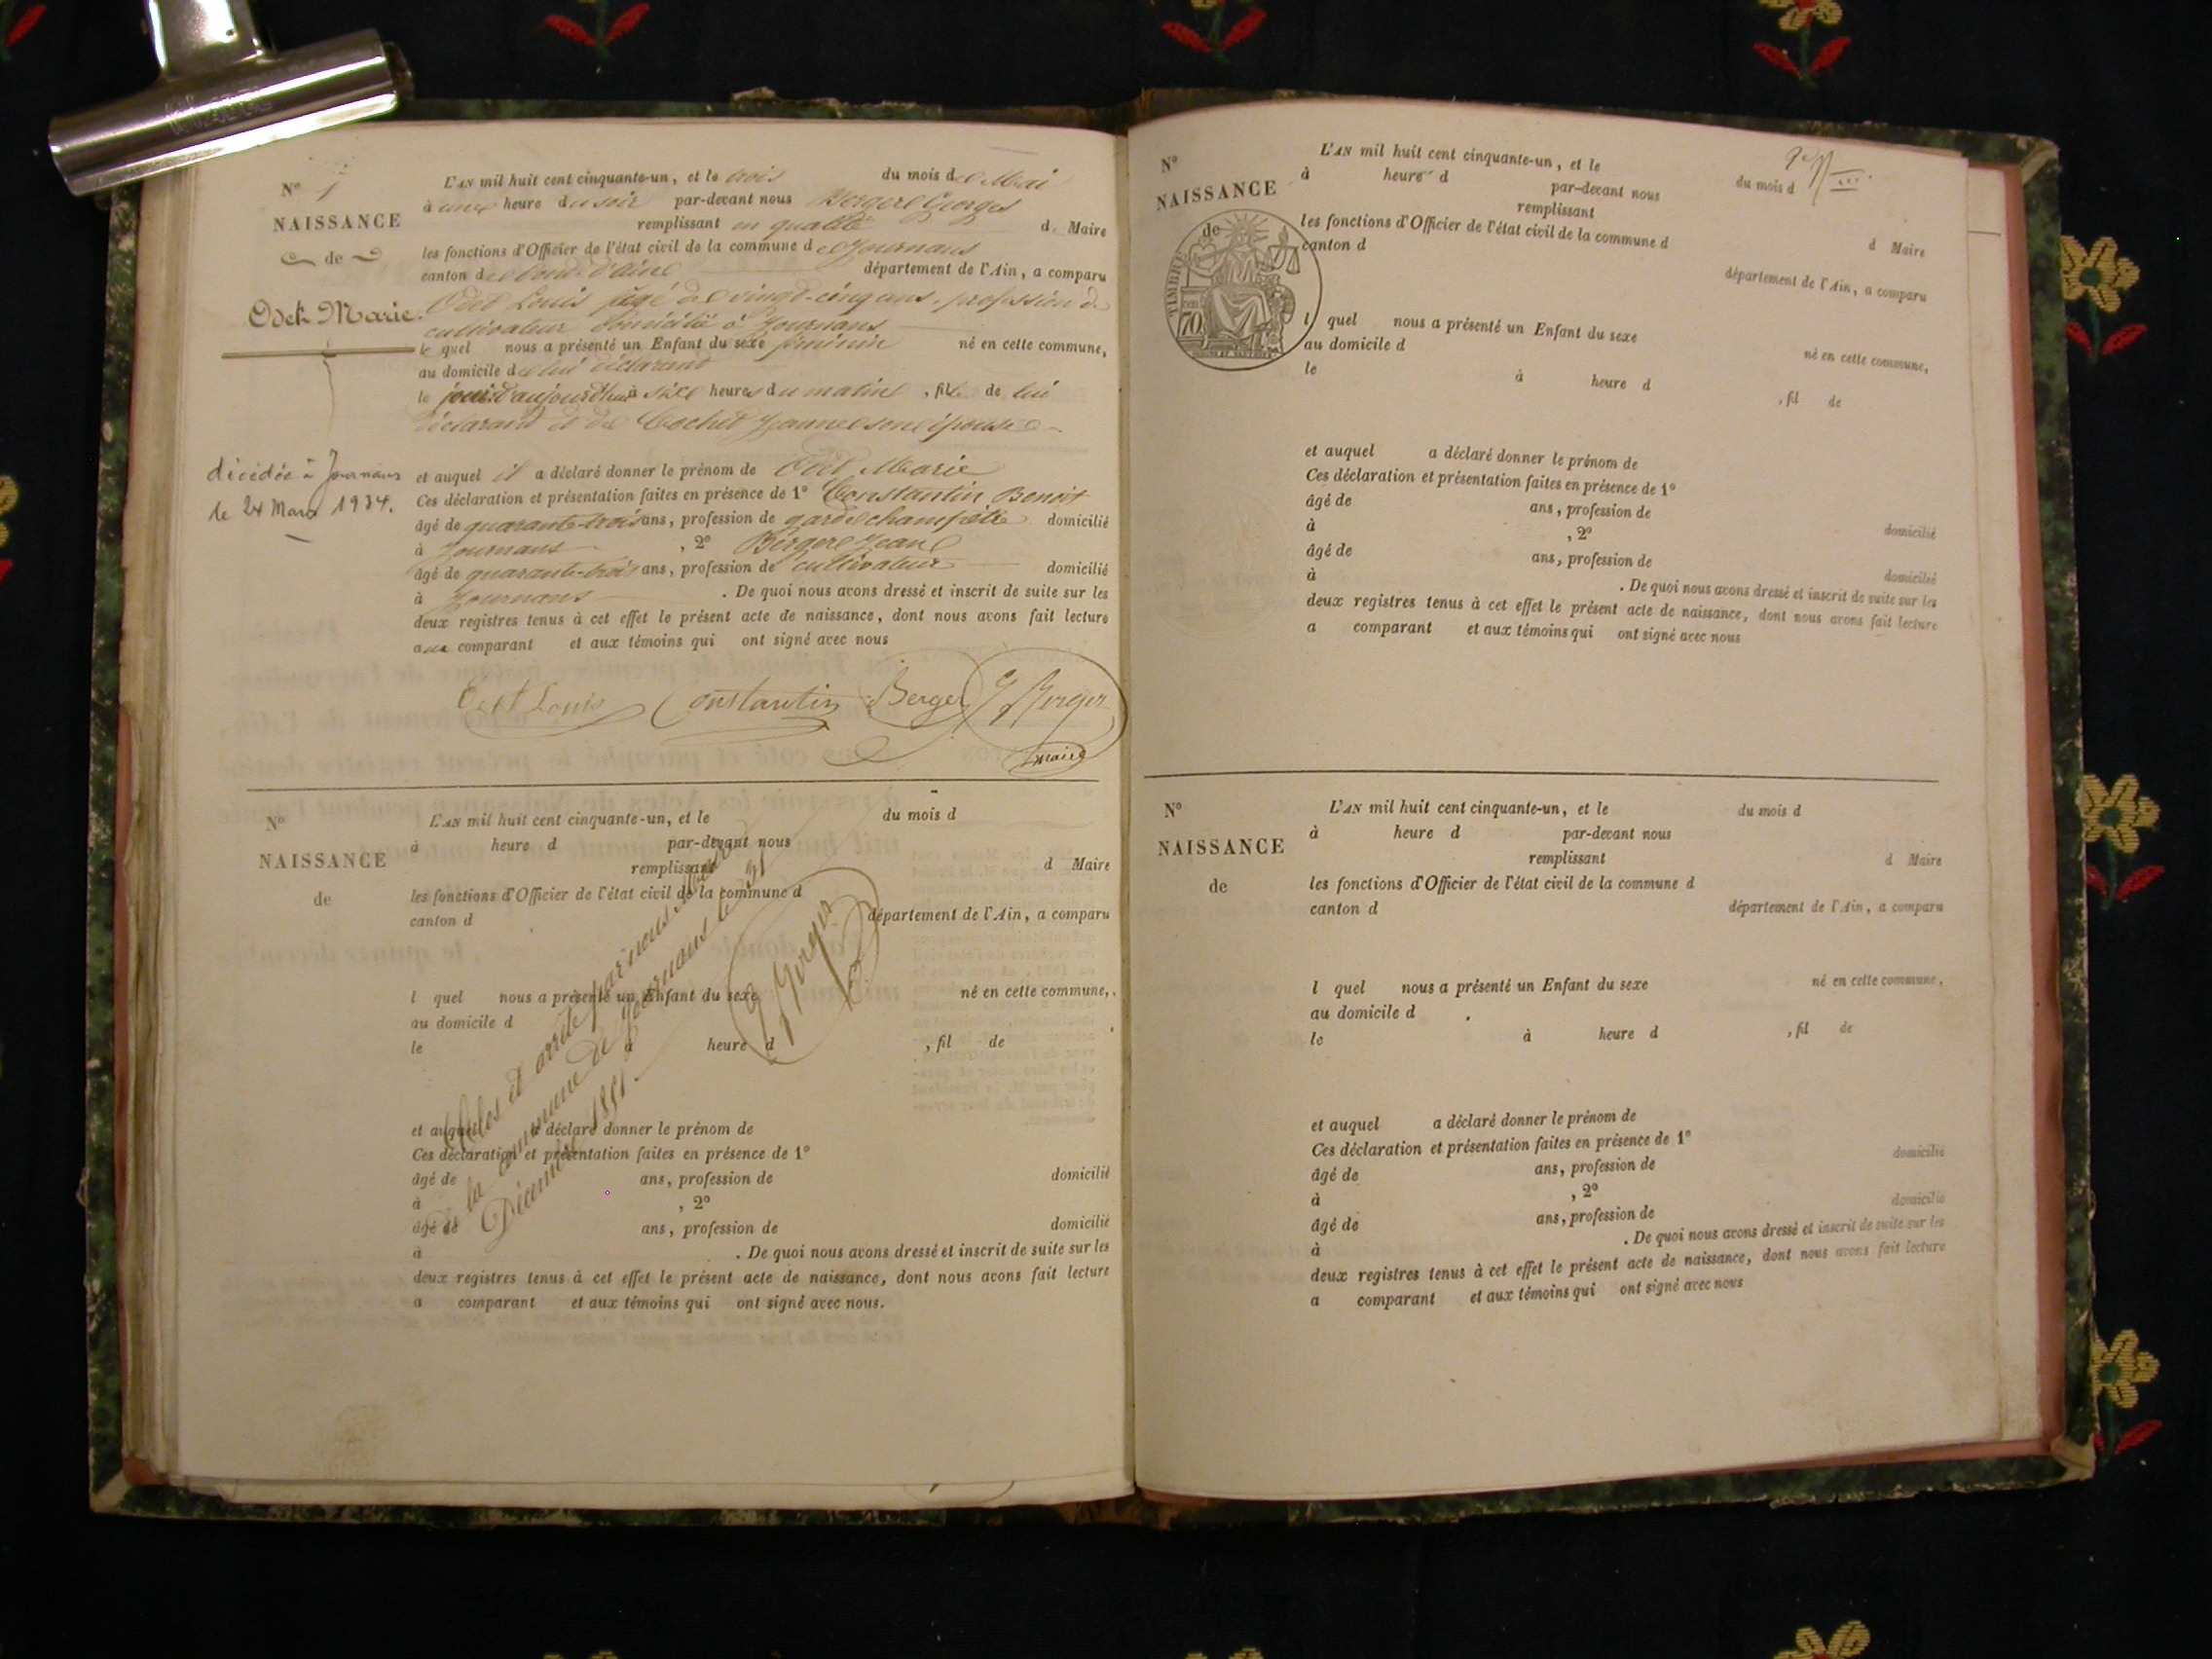 N° 1
NAISSANCE
de
Odet Marie.
décédée à Journans
le 24 Mars 1934.
L'AN mil huit cent cinquante-un, et le trois du mois de Mai
à une heure du soir par-devant nous Berger Georges
remplissant en qualité d. Maire
les fonctions d'Officier de l'état civil de la commune de Journans
canton de Pont-d'ain département de l'Ain, a comparu
Odet Louis âgé de vingt-cinq ans, profession de
cultivateur domicilié à Journans
le quel nous a présenté un Enfant du sexe féminin né en cette commune,
au domicile de lui déclarant
le jour d'aujourd'hui à six heures du matin, fille de lui
déclarant et de Cochet Jeanne son épouse
et auquel il a déclaré donner le prénom de Odet Marie
Ces déclaration et présentation faites en présence de 1° Constantin Benoit
âgé de quarante-trois ans, profession de garde champêtre domicilié
à Journans, 2° Berger Jean
âgé de quarante-trois ans, profession de cultivateur domicilié
à Journans. De quoi nous avons dressé et inscrit de suite sur les
deux registres tenus à cet effet le présent acte de naissance, dont nous avons fait lecture
aux comparant et aux témoins qui ont signé avec nous
Odet Louis Constantin Berger G Berger
maire
N°
NAISSANCE
de
L'AN mil huit cent cinquante-un, et le du mois d
à heure d par-devant nous
remplissant d Maire
les fonctions d'Officier de l'état civil de la commune d
canton d département de l'Ain, a comparu
l quel nous a présenté un Enfant du sexe né en cette commune,
au domicile d
le à heure d , fil de
et auquel a déclaré donner le prénom de
Ces déclaration et présentation faites en présence de 1°
âgé de ans, profession de domicilié
à , 2°
âgé de ans, profession de domicilié
à . De quoi nous avons dressé et inscrit de suite sur les
deux registres tenus à cet effet le présent acte de naissance, dont nous avons fait lecture
a comparant et aux témoins qui ont signé avec nous.
Clos et arrêté par nous Maire
de la commune de Journans le 31
Décembre 1851.
G Berger
N°
NAISSANCE
de
TIMBRE
70
L'AN mil huit cent cinquante-un, et le du mois d
à heure d par-devant nous
remplissant d Maire
les fonctions d'Officier de l'état civil de la commune d
canton d département de l'Ain, a comparu
l quel nous a présenté un Enfant du sexe né en cette commune,
au domicile d
le à heure d , fil de
et auquel a déclaré donner le prénom de
Ces déclaration et présentation faites en présence de 1°
âgé de ans, profession de domicilié
à , 2°
âgé de ans, profession de domicilié
à . De quoi nous avons dressé et inscrit de suite sur les
deux registres tenus à cet effet le présent acte de naissance, dont nous avons fait lecture
a comparant et aux témoins qui ont signé avec nous
N°
NAISSANCE
de
L'AN mil huit cent cinquante-un, et le du mois d
à heure d par-devant nous
remplissant d Maire
les fonctions d'Officier de l'état civil de la commune d
canton d département de l'Ain, a comparu
l quel nous a présenté un Enfant du sexe né en cette commune,
au domicile d
le à heure d , fil de
et auquel a déclaré donner le prénom de
Ces déclaration et présentation faites en présence de 1°
âgé de ans, profession de domicilié
à , 2°
âgé de ans, profession de domicilié
à . De quoi nous avons dressé et inscrit de suite sur les
deux registres tenus à cet effet le présent acte de naissance, dont nous avons fait lecture
a comparant et aux témoins qui ont signé avec nous